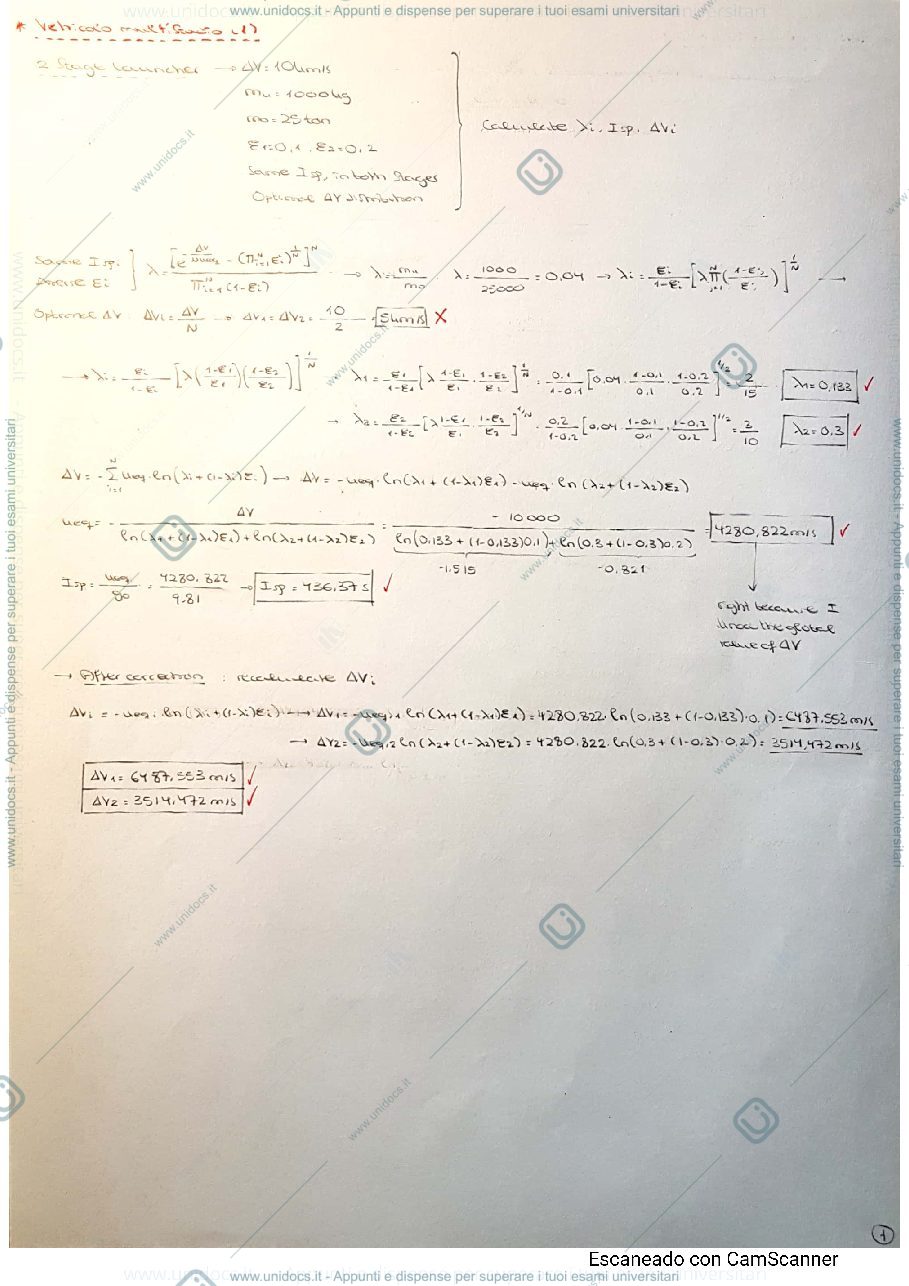 www.unidocs.it - Appunti e dispense per superare i tuoi esami universitari
* Veicolo multistadio (1)
2 Stage launcher → ΔV = 10km/s
mu = 1000kg
mo = 25ton
ε1=0,1 , ε2=0,2
Same Isp, in both stages
Optional ΔV distribution
Calculate λi, Isp, ΔVi
Same Isp.
εi ] λ = [e^(-ΔV/(N ueq)) - (Π_{i=1}^N εi)^(1/N)]^N / Π_{i=1}^N (1-εi) → λ = mu/mo · λ = 1000/25000 = 0,04 → λi = εi/(1-εi) [λ Π_{j=1}^N ((1-εj)/εj)]^(1/N) →
Optional ΔV : ΔVi = ΔV/N → ΔV1 = ΔV2 = 10/2 → 5km/s X
→ λi = εi/(1-εi) [λ((1-ε1)/ε1)((1-ε2)/ε2)]^(1/N) · λ1 = ε1/(1-ε1) [λ (1-ε1)/ε1 · (1-ε2)/ε2]^(1/N) = 0.1/(1-0.1) [0,04 · (1-0,1)/0,1 · (1-0.2)/0.2]^(1/2) = 2/15 λ1 = 0,133 ✓
→ λ2 = ε2/(1-ε2) [λ (1-ε1)/ε1 · (1-ε2)/ε2]^(1/N) · 0.2/(1-0.2) [0,04 · (1-0.1)/0.1 · (1-0,2)/0.2]^(1/2) = 3/10 λ2 = 0.3 ✓
ΔV = -Σ_{i=1}^N ueq · ln(λi + (1-λi)εi) → ΔV = -ueq · ln(λ1 + (1-λ1)ε1) - ueq · ln(λ2 + (1-λ2)ε2)
ueq = - ΔV / (ln(λ1 + (1-λ1)ε1) + ln(λ2 + (1-λ2)ε2)) = -10000 / (ln(0,133 + (1-0,133)0.1) + ln(0.3 + (1-0,3)0.2)) = 4280,822 m/s ✓
-1.515 -0.821
Isp = ueq/g0 = 4280.822/9.81 → Isp = 436,37 s ✓
right because I
the global
value of ΔV
→ After correction : recalculate ΔVi
ΔVi = -ueq,i ln(λi + (1-λi)εi) → ΔV1 = -ueq,1 ln(λ1 + (1-λ1)ε1) = 4280,822 ln(0,133 + (1-0,133)·0,1) = 6487,553 m/s
→ ΔV2 = -ueq,2 ln(λ2 + (1-λ2)ε2) = 4280,822 · ln(0,3 + (1-0,3)·0,2) = 3514,472 m/s
ΔV1 = 6487,553 m/s ✓
ΔV2 = 3514,472 m/s ✓
1
Escaneado con CamScanner
www.unidocs.it - Appunti e dispense per superare i tuoi esami universitari